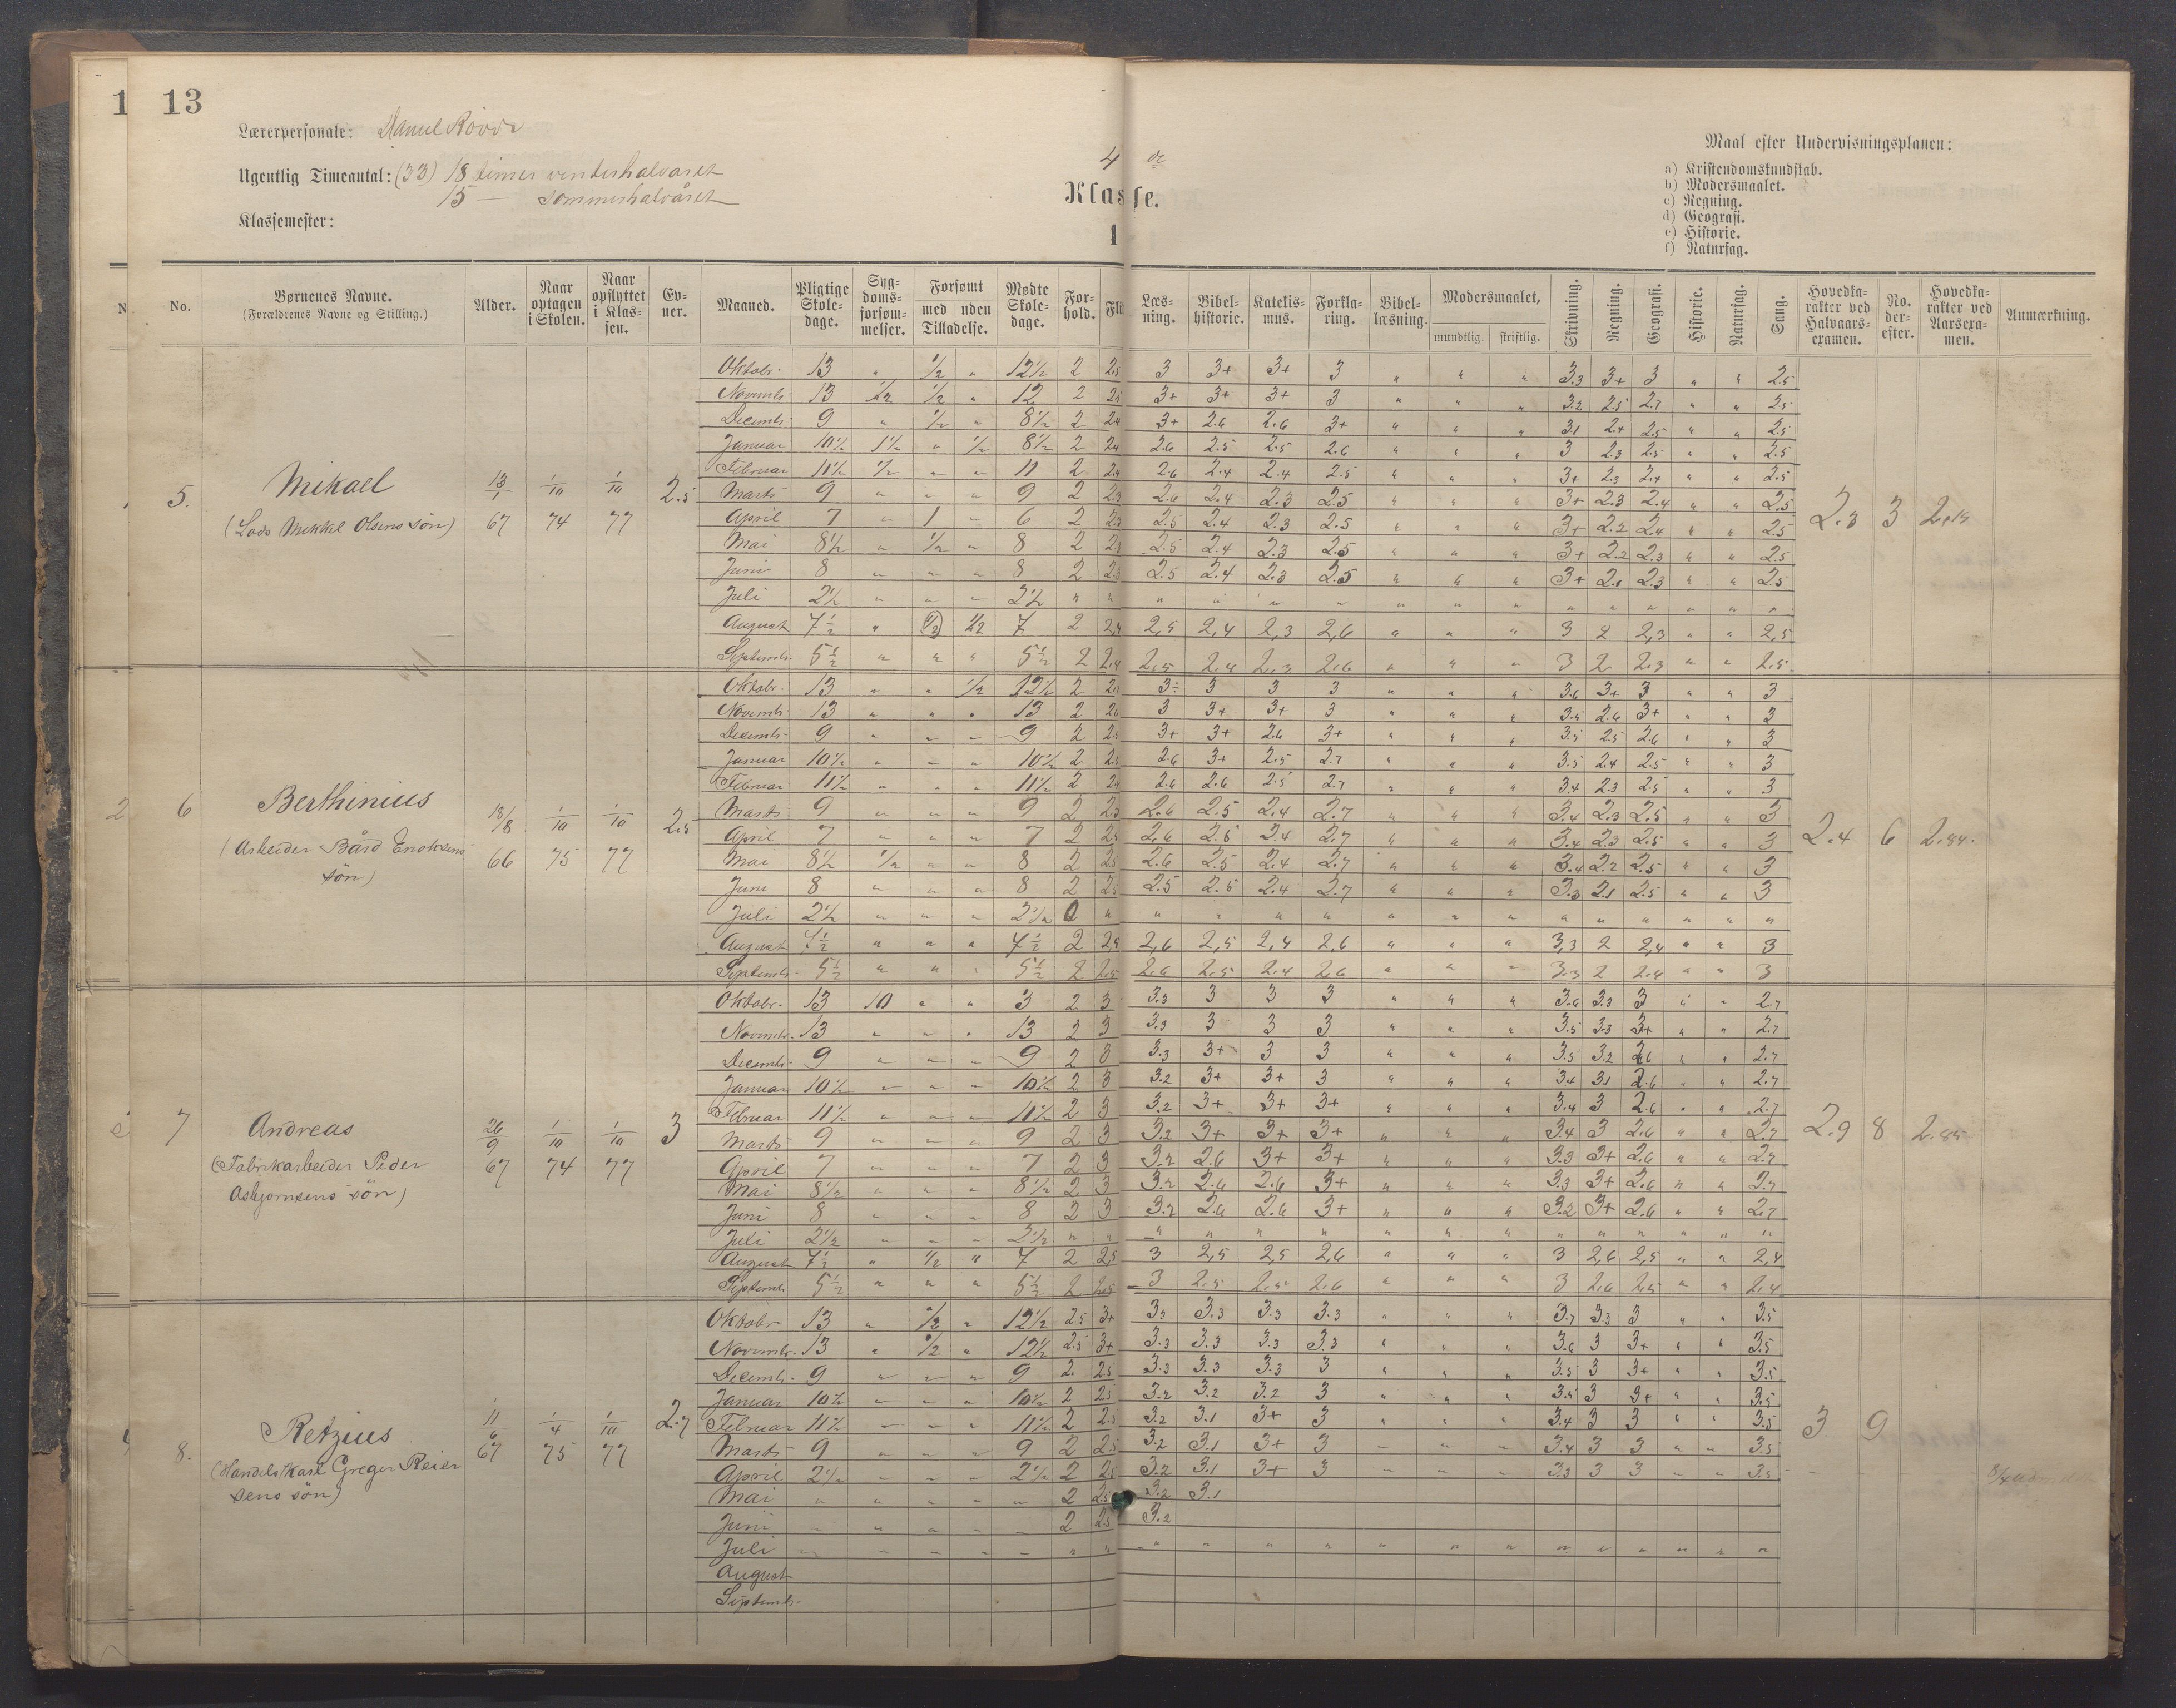 1 13
Lærerpersonale:
Ugentlig Timeantal: (33) 18 timer vinterhalvaret
15 — sommerhalvåret
Klassemester:
4 de
Klasse.
1
Maal efter Undervisningsplanen:
a) Kristendomskundskab.
b) Modersmaalet.
c) Regning.
d) Geografi.
e) Historie.
f) Naturfag.
N. No. Børnenes Navne. (Forældrenes Navne og Stilling.) Alder. Naar optagen i Skolen. Naar opflyttet i Klassen. Evner. Maaned. Pligtige Skoledage. Sygdomsforsømmelser. Forsømt med uden Tilladelse. Mødte Skoledage. Forhold. Fli
Læsning. Bibelhistorie. Katekismus. Forklaring. Bibellæsning. Modersmaalet, mundtlig. skriftlig. Skrivning. Regning. Geografi. Historie. Naturfag. Sang. Hovedkarakter ved Halvaarsexamen. No. derefter. Hovedkarakter ved Aarsexamen. Anmærkning.
5. Mikael
(Lods Mikkel Olsens søn)
13/1 67 1/10 74 1/10 77 2.5
Oktobr. 13 " 1/2 " 12 1/2 2 2.5 3 3+ 3+ 3 " " " 3.3 3+ 3 " " 2.5
Novembr. 13 1/2 1/2 " 12 2 2.5 3+ 3+ 3+ 3 " " " 3.2 2.5 2.7 " " 2.5
Decembr. 9 " 1/2 " 8 1/2 2 2.4 3+ 2.6 2.6 3+ " " " 3.1 2.4 2.5 " " 2.5
Januar 10 1/2 1 1/2 " 1/2 8 1/2 2 2.4 2.6 2.5 2.5 2.6 " " " 3 2.3 2.5 " " 2.5
Februar 11 1/2 1/2 " " 11 2 2.4 2.6 2.4 2.4 2.5 " " " 3+ 2.3 2.4 " " 2.5
Marts 9 " " " 9 2 2.3 2.6 2.4 2.3 2.5 " " " 3+ 2.3 2.4 " " 2.5
April 7 " 1 " 6 2 2.3 2.5 2.4 2.3 2.5 " " " 3+ 2.2 2.4 " " 2.5
Mai 8 1/2 " 1/2 " 8 2 2.3 2.5 2.4 2.3 2.5 " " " 3+ 2.2 2.3 " " 2.5
Juni 8 " " " 8 2 2.3 2.5 2.4 2.3 2.5 " " " 3+ 2.1 2.3 " " 2.5
Juli 2 1/2 " " " 2 1/2 " " " " " " " " " " " " " " "
August 7 1/2 " (1/2) 1/2 7 2 2,4 2,5 2,4 2,3 2,6 " " " 3 2 2,3 " " 2,5
Septembr. 5 1/2 " " " 5 1/2 2 2.4 2.5 2.4 2.3 2.6 " " " 3 2 2.3 " " 2.5
2.3 3
2 6 Berthinius
(Arbeider Bård Enoksens
søn)
18/8 66 1/10 75 1/10 77 2.5
Oktobr. 13 " " 1/2 12 1/2 2 2.7 3÷ 3 3 3 " " " 3.6 3+ 3 " " 3
Novembr. 13 " " " 13 2 2.6 3 3+ 3+ 3 " " " 3.5 2.6 3+ " " 3
Decembr. 9 " " " 9 2 2.5 3+ 3+ 2.6 3+ " " " 3.5 2.5 2.6 " " 3
Januar 10 1/2 " " " 10 1/2 2 2.5 2.6 3+ 2.5 2.7 " " " 3.5 2.4 2.5 " " 3
Februar 11 1/2 " " " 11 1/2 2 2.4 2.6 2.6 2.5 2.7 " " " 3.4 2.3 2.5 " " 3
Marts 9 " " " 9 2 2.5 2.6 2.5 2.4 2.7 " " " 3.4 2.3 2.5 " " 3
April 7 " " " 7 2 2.5 2.6 2.5 2.4 2.7 " " " 3.4 2.3 2.5 " " 3
Mai 8 1/2 1/2 " " 8 2 2.5 2.6 2.5 2.4 2.7 " " " 3.4 2.2 2.5 " " 3
Juni 8 " " " 8 2 2.5 2.5 2.5 2.4 2.7 " " " 3.3 2.1 2.5 " " 3
Juli 2 1/2 " " " 2 1/2 0 " " " " " " " " " " " " " "
August 7 1/2 " " " 7 1/2 2 2,5 2,6 2,5 2,4 2,6 " " " 3,3 2 2,4 " " 3
Septembr. 5 1/2 " " " 5 1/2 2 2.5 2.6 2.5 2.4 2.6 " " " 3.3 2 2.4 " " 3
2.4 6 2.44.
7 Andreas
(Fabrikarbeider Peder
Asbjørnsens søn)
26/9 67 1/10 74 1/10 77 3
Oktobr. 13 10 " " 3 2 3 3.3 3 3 3 " " " 3.6 3.3 3 " " 2.7
Novembr. 13 " " " 13 2 3 3.3 3 3 3 " " " 3.5 3.3 3+ " " 2.7
Decembr. 9 " " " 9 2 3 3.3 3+ 3 3 " " " 3.5 3.2 2.6 " " 2.7
Januar 10 1/2 " " " 10 1/2 2 3 3.2 3+ 3+ 3 " " " 3.4 3.1 2.6 " " 2.7
Februar 11 1/2 " " " 11 1/2 2 3 3.2 3+ 3+ 3+ " " " 3.4 3 2.6 " " 2.7
Marts 9 " " " 9 2 3 3.2 3+ 3+ 3+ " " " 3.4 3 2.6 " " 2.7
April 7 " " " 7 2 3 3.2 2.6 3+ 3+ " " " 3.3 3+ 2.6 " " 2.7
Mai 8 1/2 " " " 8 1/2 2 3 3.2 2.6 2.6 3+ " " " 3.3 3+ 2.6 " " 2.7
Juni 8 " " " 8 2 3 3.2 2.6 2.6 3+ " " " 3.2 3+ 2.6 " " 2.7
Juli 2 1/2 " " " 2 1/2 " " " " " " " " " " " " " " "
August 7 1/2 " 1/2 " 7 2 2,5 3 2,5 2,5 2,6 " " " 3 2,6 2,5 " " 2,4
Septembr. 5 1/2 " " " 5 1/2 2 2.5 3 2.5 2.5 2.6 " " " 3 2.6 2.5 " " 2.4
2.9 8 2.85
8. Retzius
(Handelskarl Greger Reier
sens søn)
11/6 67 1/4 75 1/10 77 2.7
Oktobr 13 " 1/2 " 12 1/2 2.5 3+ 3.3 3.3 3.3 3.3 " " " 3.7 3.3 3 " " 3.5
Novembr. 13 " 1/2 " 12 1/2 2.5 3+ 3.3 3.3 3.3 3.3 " " " 3.6 3 3+ " " 3.5
Decembr. 9 " " " 9 2. 2.5 3.3 3.3 3.3 3 " " " 3.5 3 3+ " " 3.5
Januar 10 1/2 " " " 10 1/2 2 2.5 3.2 3.2 3.2 3 " " " 3.5 3 3+ " " 3.5
Februar 11 1/2 " " " 11 1/2 2 2.5 3.2 3.1 3+ 3 " " " 3.4 3 3 " " 3.5
Marts 9 " " " 9 2 2.5 3.2 3.1 3+ 3 " " " 3.4 3 3 " " 3.5
April 2 1/2 " " " 2 1/2 2 2.5 3.2 3.1 3+ 3 " " " 3.3 3 3 " " 3.5
Mai " " " " " 2 2.5 3.2 3.1
Juni " " " " " 2 2.5 3.2
Juli " " " " " " " " " " " " " " " " " " " "
August
Septembr.
3. 9